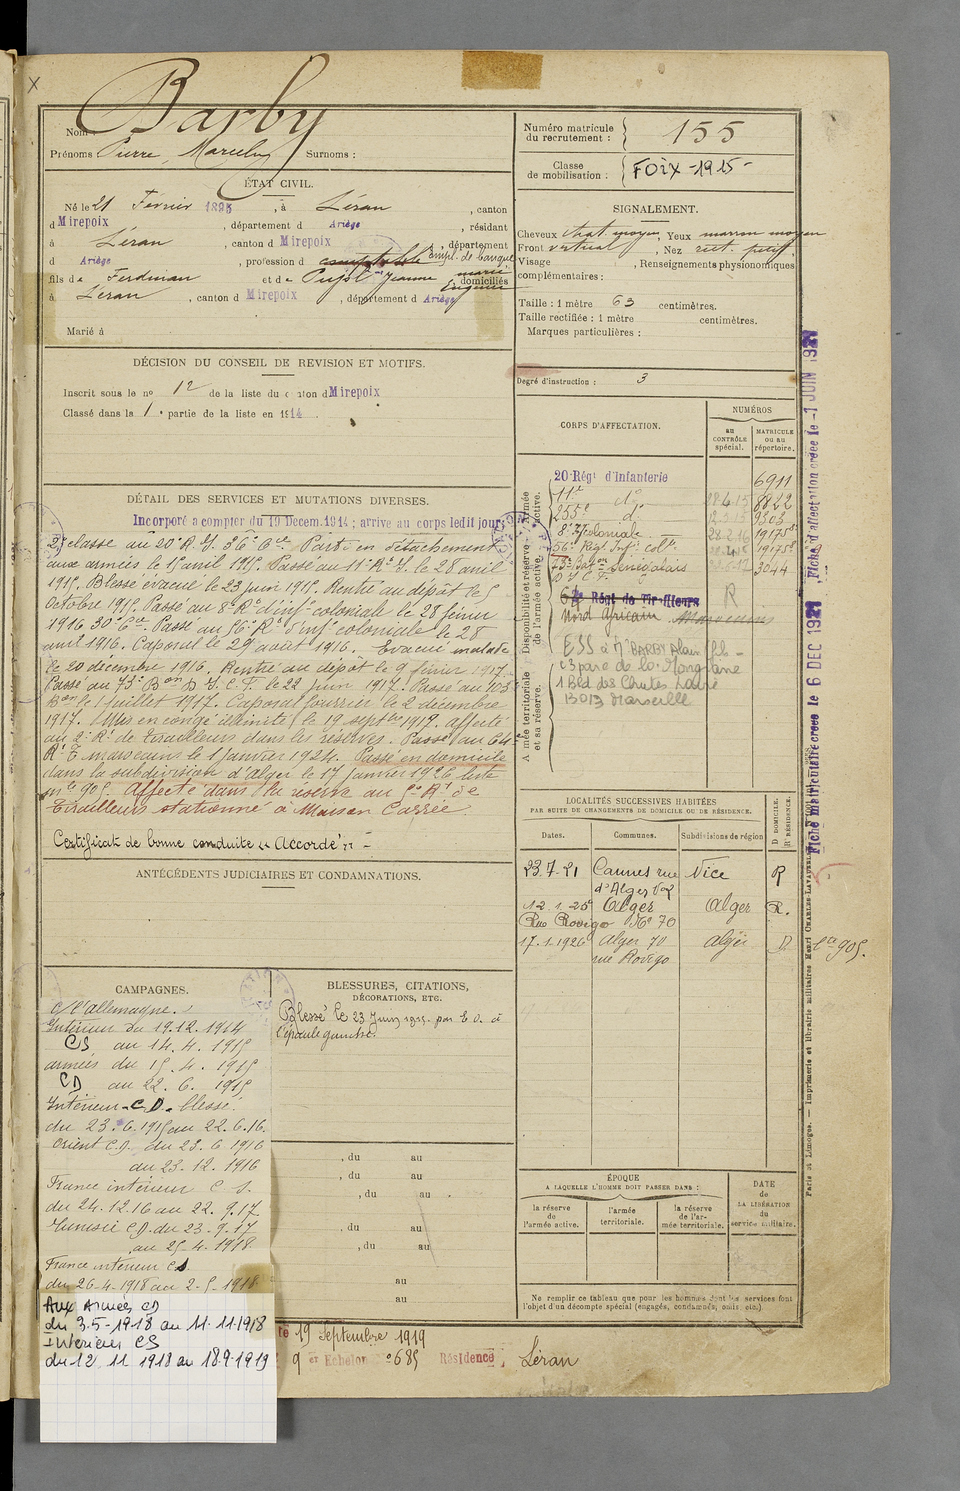 Nom Barby
Prénoms Pierre, Marcelin Surnoms :
Numéro matricule du recrutement : 155
Classe de mobilisation : FOIX -1915-
ÉTAT CIVIL.
Né le 21 Février 1895, à Léran, canton
d Mirepoix, département d Ariège, résidant
à Léran, canton d Mirepoix, département
d Ariège, profession d comptable Empl. de banque
fils de Ferdinan et de Pujol Jeanne marie Eugénie domiciliés
à Léran, canton d Mirepoix, département d Ariège
Marié à
SIGNALEMENT.
Cheveux chat. moyen, Yeux marron moyen
Front vertical, Nez rect. petit,
Visage , Renseignements physionomiques
complémentaires :
Taille : 1 mètre 63 centimètres.
Taille rectifiée : 1 mètre centimètres.
Marques particulières :
Degré d'instruction : 3
DÉCISION DU CONSEIL DE REVISION ET MOTIFS.
Inscrit sous le no 12 de la liste du canton d Mirepoix
Classé dans la 1e partie de la liste en 1914.
DÉTAIL DES SERVICES ET MUTATIONS DIVERSES.
Incorporé à compter du 19 Decem. 1914; arrivé au corps ledit jour,
2e classe au 20e R.I. 36e Cie. Parti en détachement
aux armées le 15 avril 1915. Passé au 11e R.I. le 28 avril
1915. Blessé évacué le 23 juin 1915. Rentré au dépôt le 5
Octobre 1915. Passé au 8e Rt d'inf. coloniale le 28 février
1916 30e Cie. Passé au 56e Rt d'inf. coloniale le 28
avril 1916. Caporal le 29 août 1916. Evacué malade
le 20 décembre 1916. Rentré au dépôt le 9 février 1917.
Passé au 73e Bon D I.C.F. le 22 juin 1917. Passé au 103
Bon le 1 juillet 1917. Caporal fourrier le 2 décembre
1917. Mis en congé illimité le 19 septbre 1919. affecté
au 2e Rt de tirailleurs dans les réserves. Passé au 64e
Rt T. marocains le 1 janvier 1924. Passé en domicile
dans la subdivision d'Alger le 17 janvier 1926 liste
mle 905. Affecté dans la réserve au 5e Rt de
Tirailleurs stationné à Maison Carrée.
Certificat de bonne conduite "Accordé" -
ANTÉCÉDENTS JUDICIAIRES ET CONDAMNATIONS.
CORPS D'AFFECTATION.
NUMÉROS
au CONTRÔLE spécial.
MATRICULE ou au répertoire.
Disponibilité et réserve de l'armée active. Armée active.
Armée territoriale et sa réserve.
20e Régt d'Infanterie 6911
11e do 28.4.15 8822
255e do 9303
8e Rt Coloniale 28.2.16 19175
56e Régt Infie colle 19175
73e Baton Senegalais 3044
D I C F
64e Régt de Tirailleurs R
Nord Africain Marocains
ESS à Mr BARBY Alain
13 parc de la Mongrane
1 Bld des Chutes Lavie
13013 Marseille
LOCALITÉS SUCCESSIVES HABITÉES
PAR SUITE DE CHANGEMENTS DE DOMICILE OU DE RÉSIDENCE.
Dates. Communes. Subdivisions de région D. DOMICILE. R. RÉSIDENCE.
23.7.21 Cannes rue d'Alger Nice R
12.1.25 Alger Alger R.
Rue Rovigo No 70
17.1.1926 Alger 70 rue Rovigo Alger D le 905.
CAMPAGNES.
C/ l'allemagne.
Intérieur du 19.12.1914
CS au 14.4.1915
armées du 15.4.1915
CD au 22.6.1915
Intérieur - C.D. blessé.
du 23.6.1915 au 22.6.16.
Orient C.D. du 23.6.1916
au 23.12.1916
France intérieur C S.
du 24.12.16 au 22.9.17.
Tunisie C.D. du 23.9.17
au 25.4.1918
France intérieur CS.
du 26-4-1918 au 2-5-1918
Aux Armées CD
du 3.5-1918 au 11.11.1918
Intérieur CS
du 12 11 1918 au 18.9.1919
BLESSURES, CITATIONS,
DÉCORATIONS, ETC.
Blessé le 23 Juin 1915. par E.O. à
l'épaule gauche.
, du au
, du au
, du au
, du au
, du au
au
au
ÉPOQUE
A LAQUELLE L'HOMME DOIT PASSER DANS :
la réserve de l'armée active.
l'armée territoriale.
la réserve de l'armée territoriale.
DATE de LA LIBÉRATION du service militaire.
Ne remplir ce tableau que pour les hommes dont les services font
l'objet d'un décompte spécial (engagés, condamnés, omis, etc.)
le 19 Septembre 1919
9 er Echelon no 685 Résidence Léran
Fiche d'affectation créée le -1 JUIN 1921
Fiche matriculaire créée le 6 DEC 1921
Paris et Limoges. — Imprimerie et librairie militaires Henri CHARLES-LAVAUZELLE